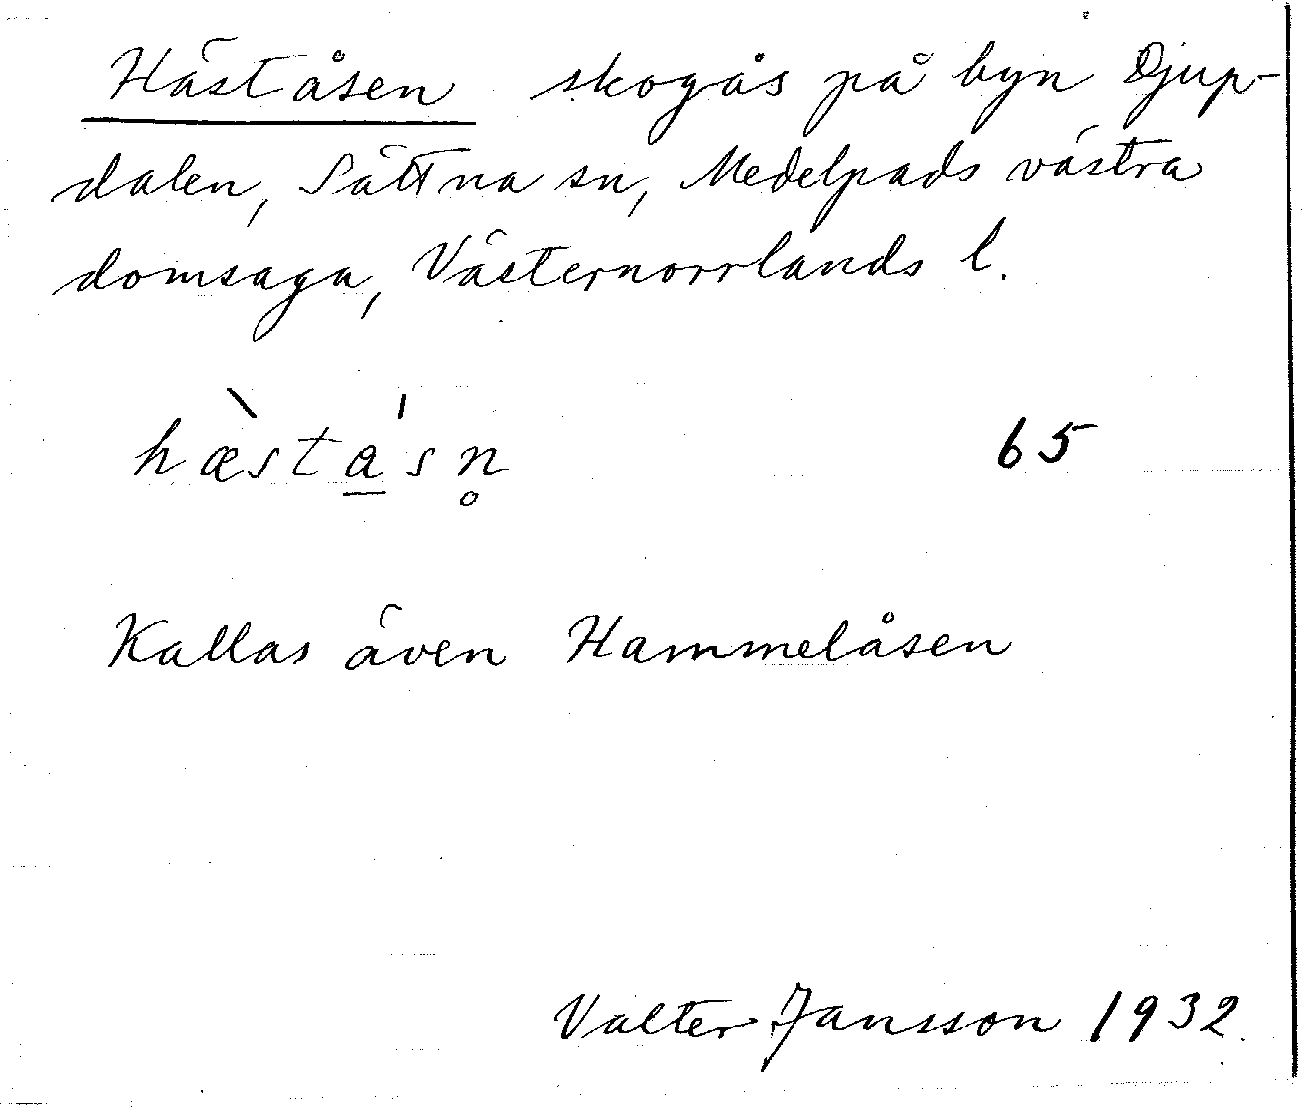 Häståsen skogås på byn Djup-
dalen, Sättna sn, Medelpads västra
domsaga, Västernorrlands l.
hæ̀sta̲ˈsn̥ 65
Kallas även Hammelåsen
Valter Jansson 1932.